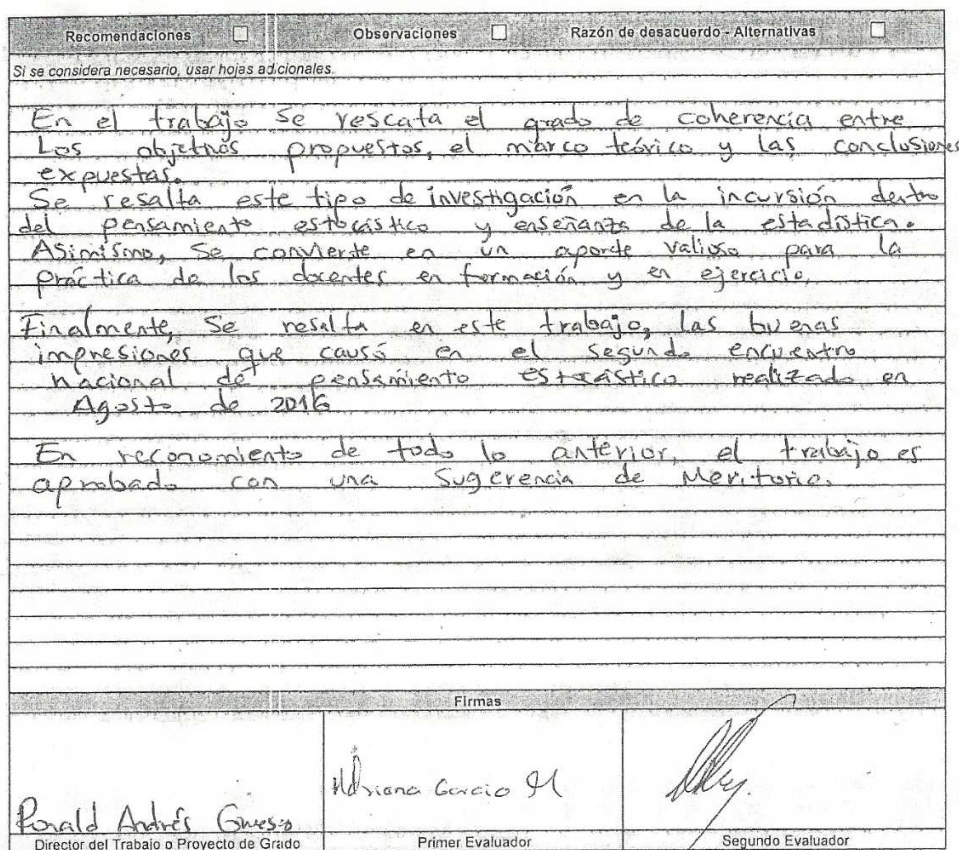 Recomendaciones Observaciones Razón de desacuerdo - Alternativas
Si se considera necesario, usar hojas adicionales.
En el trabajo se rescata el grado de coherencia entre
Los objetivos propuestos, el marco teórico y las conclusiones
expuestas.
Se resalta este tipo de investigación en la incursión dentro
del pensamiento estocástico y enseñanza de la estadística.
Asimismo, se convierte en un aporte valioso para la
práctica de los docentes en formación y en ejercicio.
Finalmente, Se resalta en este trabajo, las buenas
impresiones que causó en el segundo encuentro
nacional de pensamiento estocástico realizado en
Agosto de 2016
En reconomiento de todo lo anterior, el trabajo es
aprobado con una Sugerencia de Meritorio.
Firmas
Ronald Andrés Adriana García M
Director del Trabajo o Proyecto de Grado Primer Evaluador Segundo Evaluador